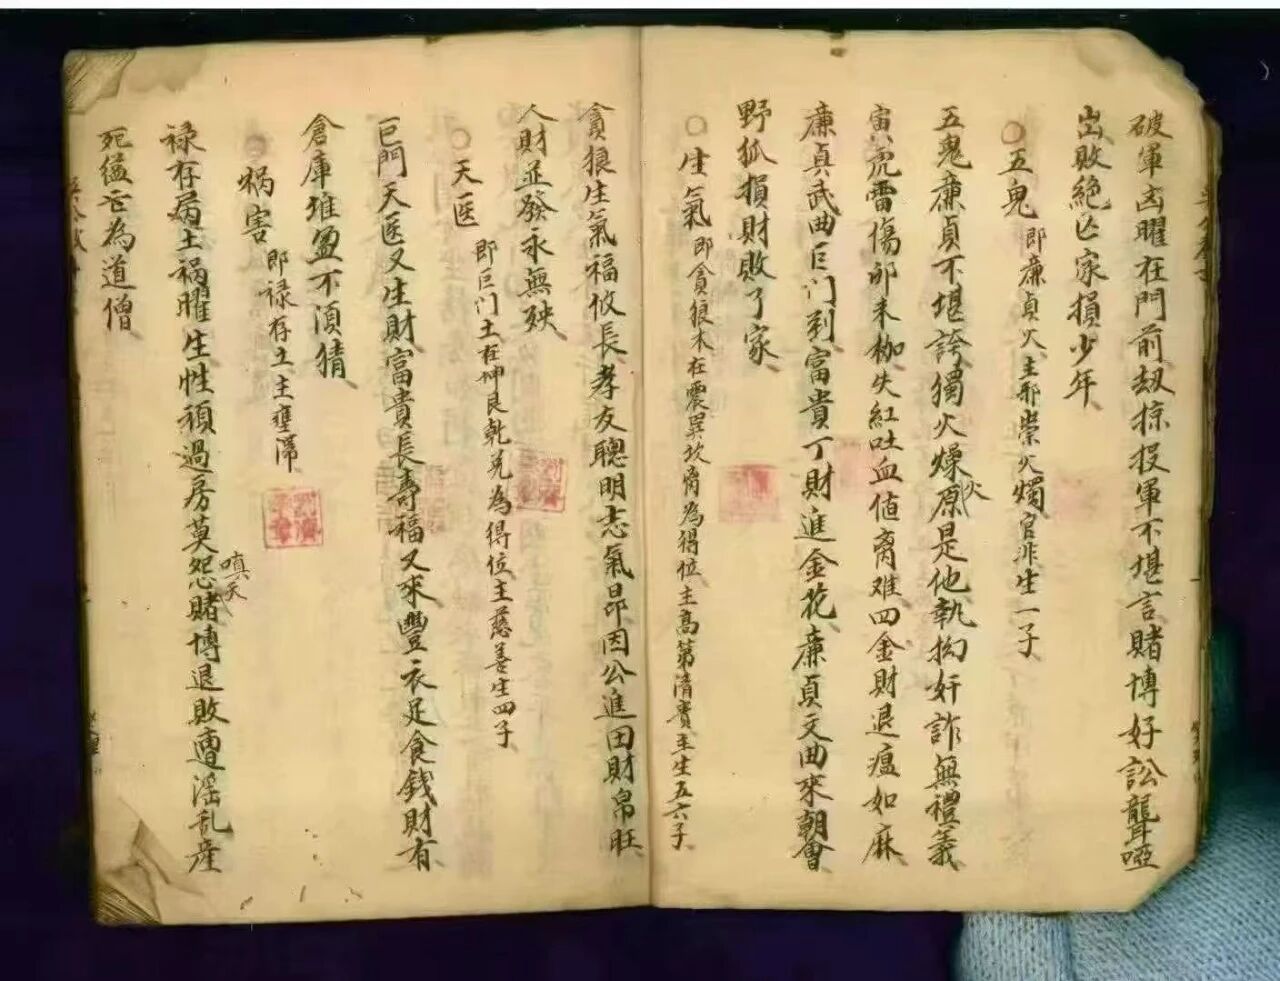 破軍凶曜在門前劫掠投軍不堪言賭博好訟聾耳啞
出敗絕亡家損少年
○五鬼 即廉貞火主邪祟火燭官非生一子
五鬼廉貞不堪誇獨火燥火原是他執拗奸詐無禮義
寅虎雷傷郎未枷失紅吐血值离难四金財退瘟如麻
廉貞武曲巨门到富貴丁財進金花廉貞文曲來朝會
野狐損財敗了家
○生氣 即貪狼木在震巽坎离為得位主高第清貴主生五六子
貪狼生氣福攸長孝友聰明志氣昂因公進田財帛旺
人財並發永無殃
○天医 即巨门土在坤艮乾兑為得位主慈善生四子
巨門天医又生財富貴長壽福又來豐衣足食錢財有
倉庫堆盈不須猜
○祸害 即禄存土主壅滞
禄存病土祸曜生性頑過房莫怨嗔天賭博退敗遭淫乱產
死為道僧